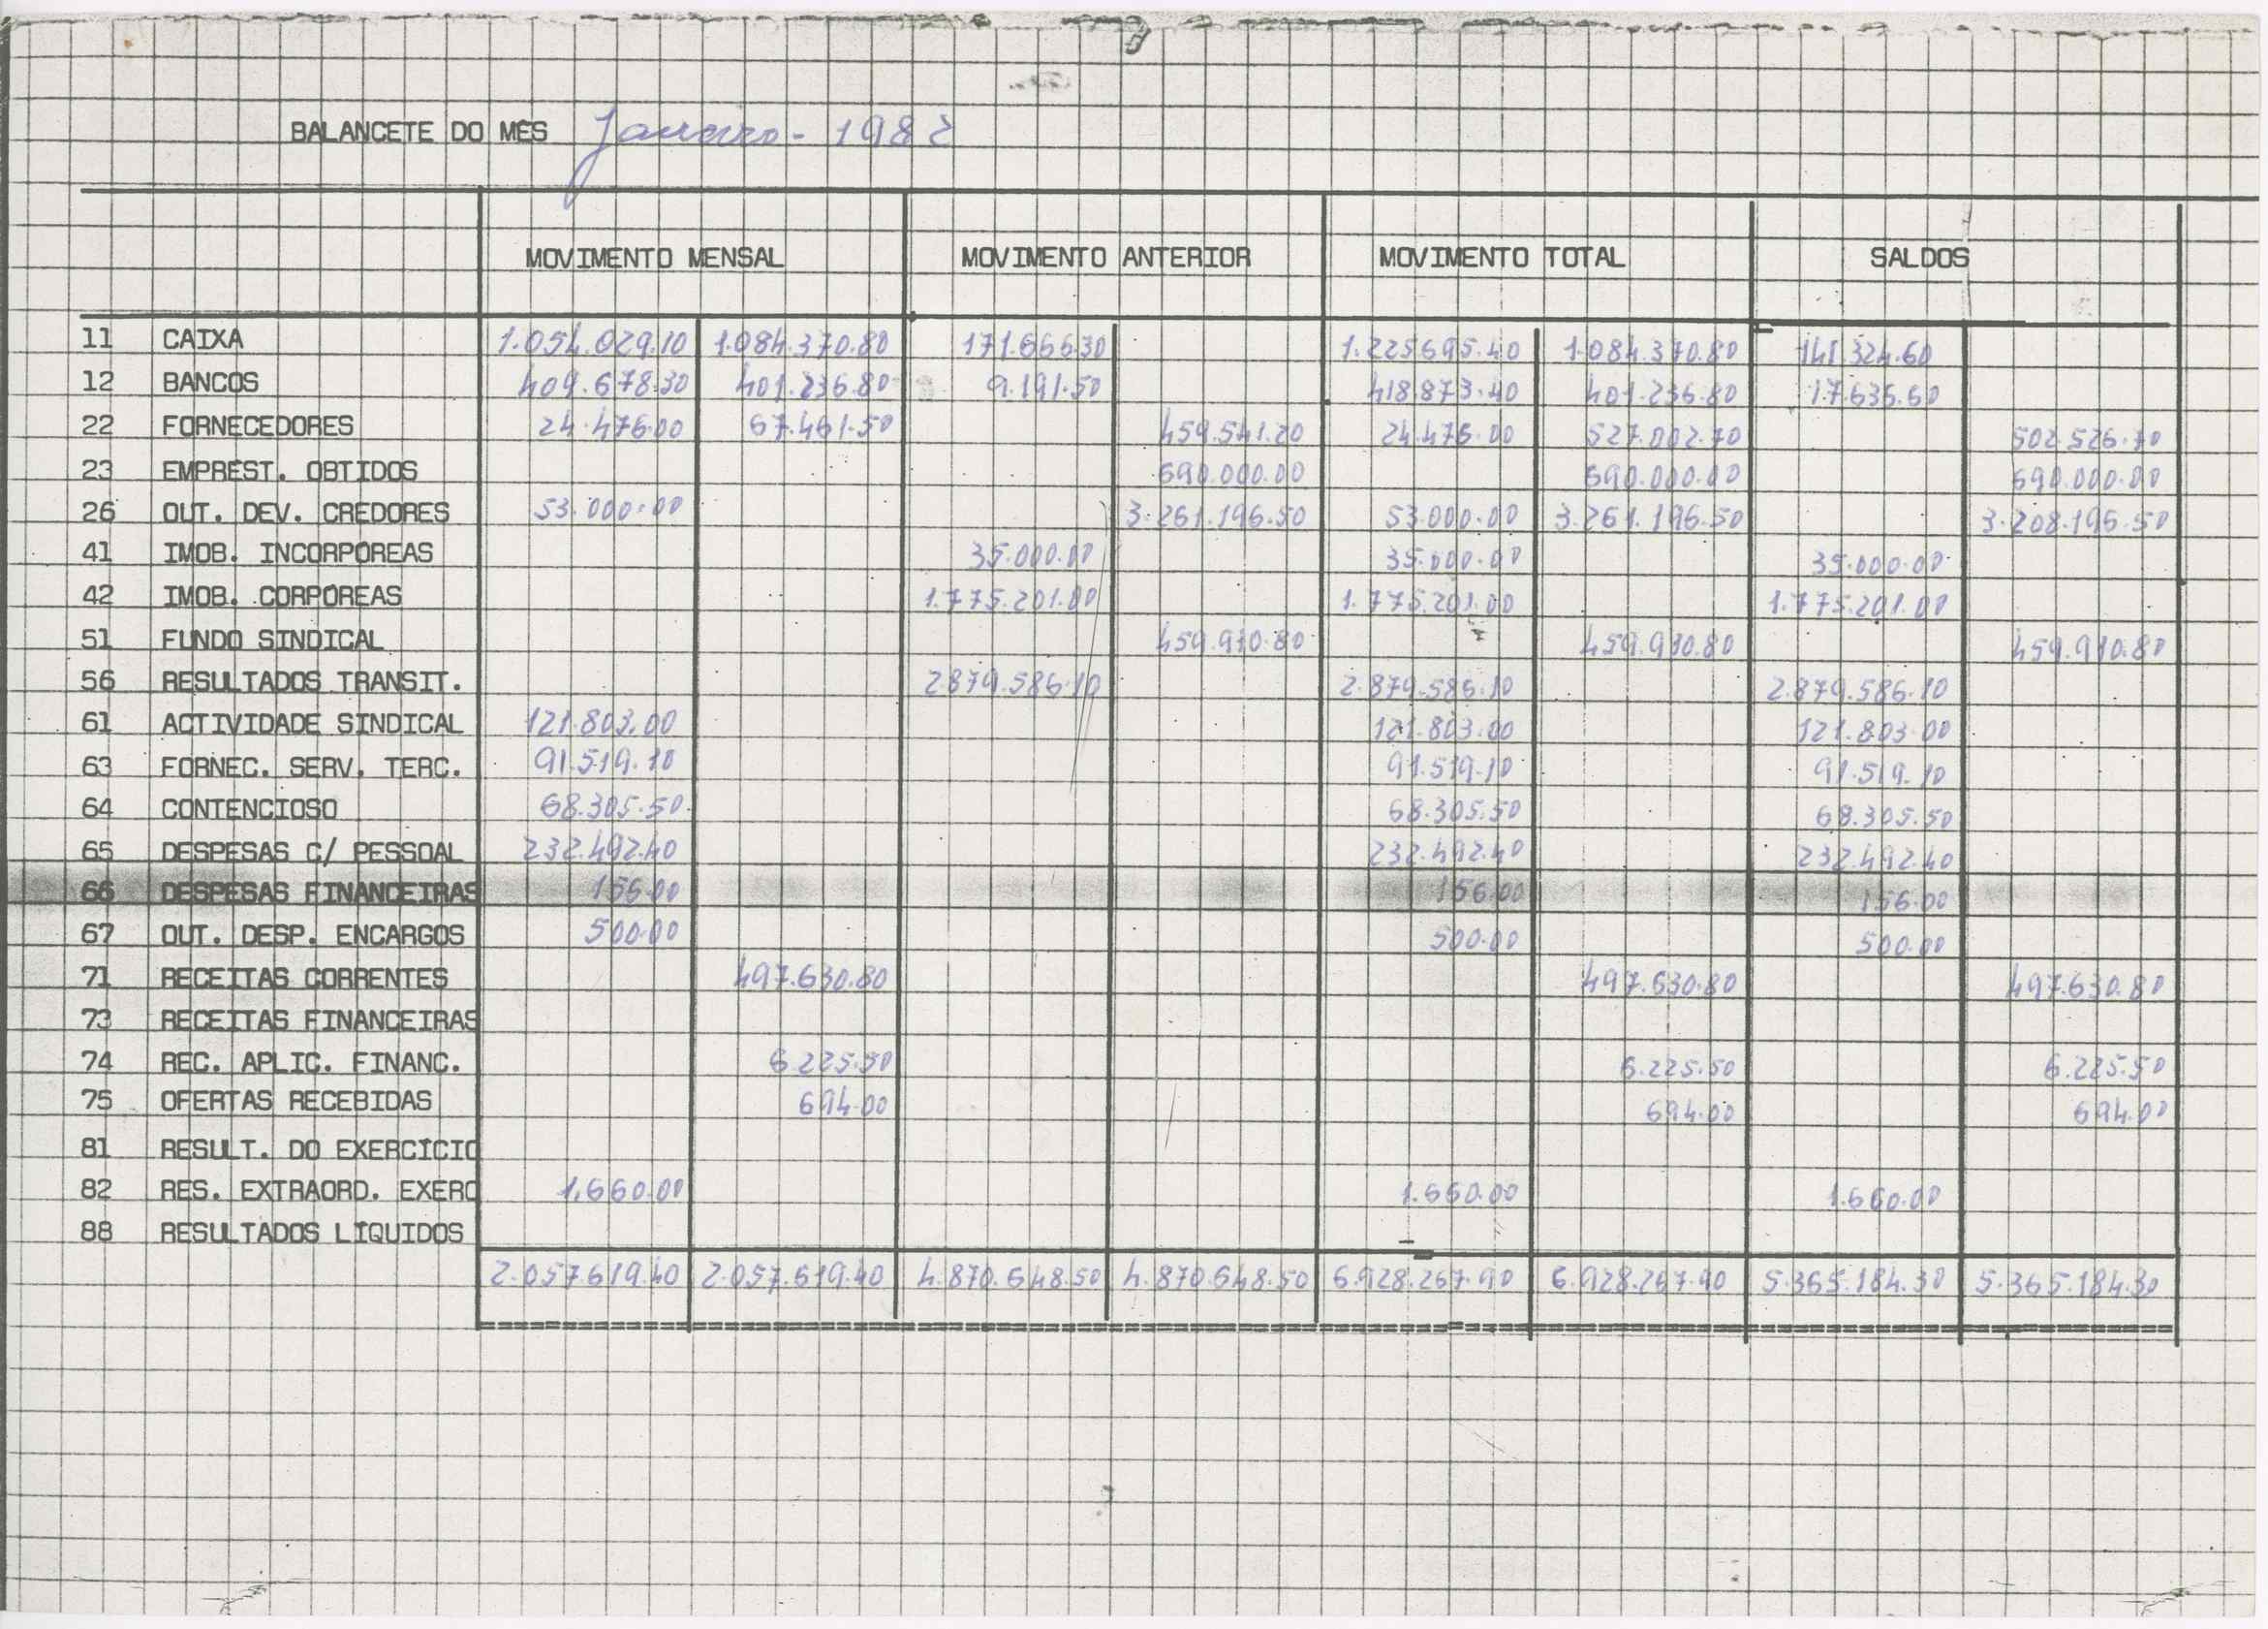 BALANCETE DO MÊS Janeiro - 1982
MOVIMENTO MENSAL MOVIMENTO ANTERIOR MOVIMENTO TOTAL SALDOS
11 CAIXA 1.054.029.10 1.084.370.80 171.666.30 1.225695.40 1.084.370.80 141.324.60
12 BANCOS 409.678.30 401.236.80 9.191.50 418.873.40 401.236.80 17.636.60
22 FORNECEDORES 24.476.00 67.461.50 459.541.20 24.476.00 527.002.70 502.526.70
23 EMPREST. OBTIDOS 690.000.00 690.000.00 690.000.00
26 OUT. DEV. CREDORES 53.000.00 3.261.196.50 53.000.00 3.261.196.50 3.208.196.50
41 IMOB. INCORPÓREAS 35.000.00 35.000.00 35.000.00
42 IMOB. CORPÓREAS 1.775.201.00 1.775.201.00 1.775.201.00
51 FUNDO SINDICAL 459.910.80 459.910.80 459.910.80
56 RESULTADOS TRANSIT. 2879.586.10 2.879.586.10 2.879.586.10
61 ACTIVIDADE SINDICAL 121.803.00 121.803.00 121.803.00
63 FORNEC. SERV. TERC. 91.519.10 91.519.10 91.519.10
64 CONTENCIOSO 68.305.50 68.305.50 68.305.50
65 DESPESAS C/ PESSOAL 232.492.40 232.492.40 232.492.40
66 DESPESAS FINANCEIRAS 156.00 156.00 156.00
67 OUT. DESP. ENCARGOS 500.00 500.00 500.00
71 RECEITAS CORRENTES 497.630.80 497.630.80 497.630.80
73 RECEITAS FINANCEIRAS
74 REC. APLIC. FINANC. 6.225.50 6.225.50 6.225.50
75 OFERTAS RECEBIDAS 694.00 694.00 694.00
81 RESULT. DO EXERCÍCIO
82 RES. EXTRAORD. EXERC 1.660.00 1.660.00 1.660.00
88 RESULTADOS LÍQUIDOS
2.057619.40 2.057.619.40 4.870.648.50 4.870.648.50 6.928.267.90 6.928.267.90 5.365.184.30 5.365.184.30